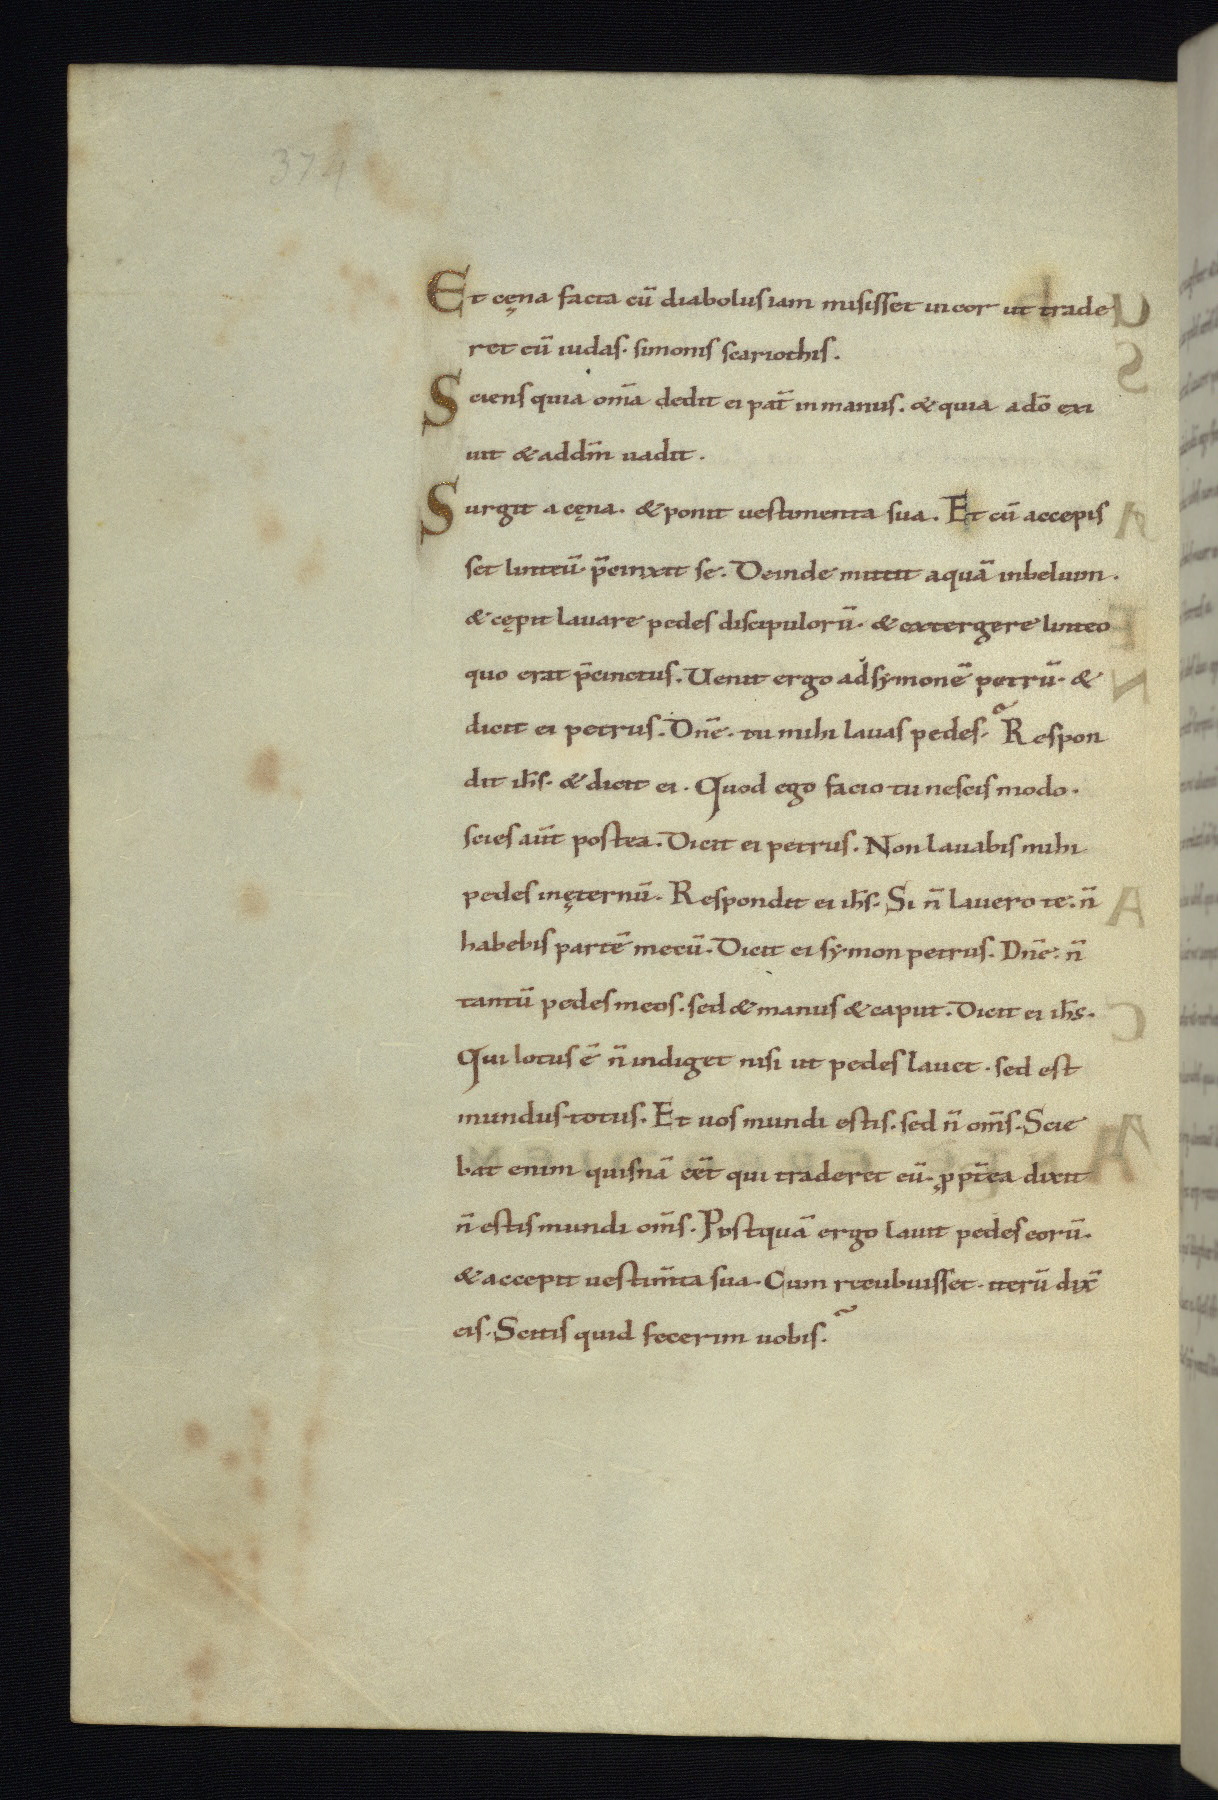 374
Et cęna facta cū diabolus iam misisset in cor ut trade
ret eū iudas. simonis scariothis.
Sciens quia om̄a dedit ei pat̄ in manus. & quia a dō exi
uit & ad dm̄ uadit.
Surgit a cęna. & ponit uestimenta sua. Et cū accepis
set linteū. p̄cinxit se. Deinde mittit aquā in peluim.
& cępit lauare pedes discipulorū. & extergere linteo
quo erat p̄cinctus. Uenit ergo ad symonē petrū. &
dicit ei petrus. Dn̄e. tu mihi lauas pedes. Respon
dit ih̄s. & dicit ei. Quod ego facio tu nescis modo.
scies aut̄ postea. Dicit ei petrus. Non lauabis mihi
pedes in ęternū. Respondit ei ih̄s. Si n̄ lauero te. n̄
habebis partē mecū. Dicit ei symon petrus. Dn̄e. n̄
tantū pedes meos. sed & manus & caput. Dicit ei ih̄s.
Qui lotus ē n̄ indiget nisi ut pedes lauet. sed est
mundus totus. Et uos mundi estis. sed n̄ om̄s. Scie
bat enim quisnā eēt qui traderet eū. ꝓpt̄ea dixit
n̄ estis mundi om̄s. Postquā ergo lauit pedes eorū.
& accepit uestim̄ta sua. Cum recubuisset. iterū dix̄
eis. Scitis quid fecerim uobis.